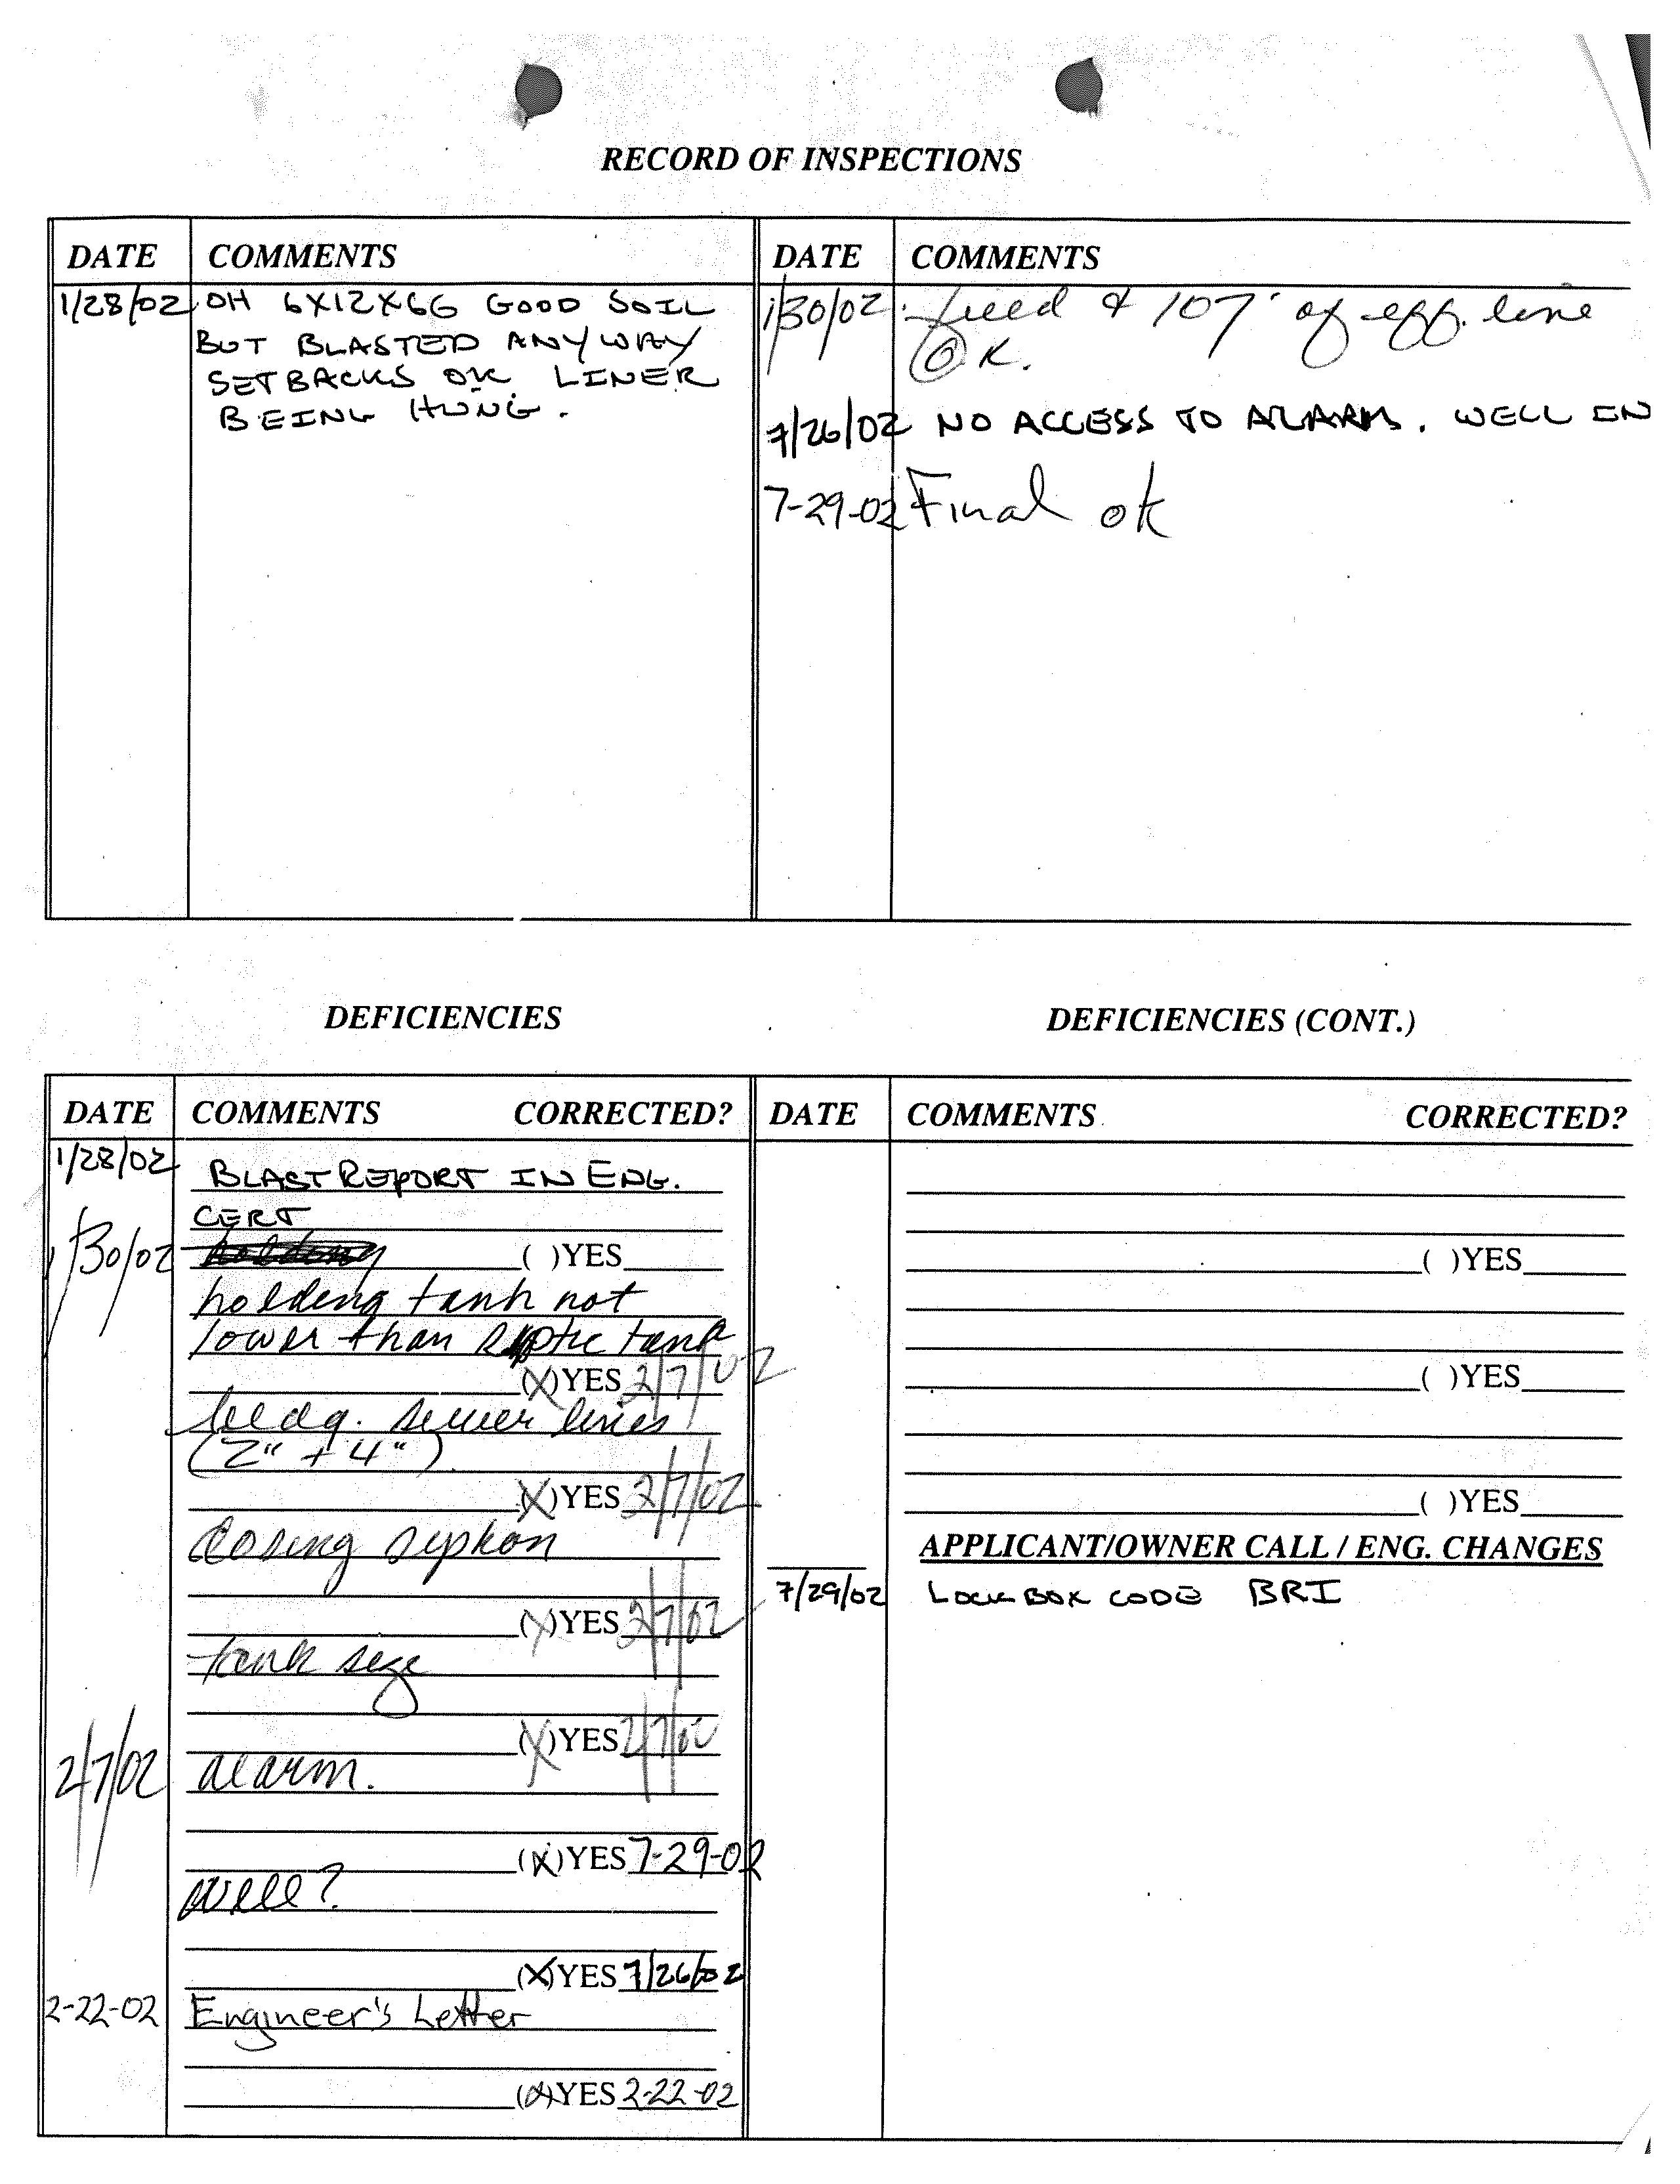 RECORD OF INSPECTIONS
DATE COMMENTS
1/28/02 OH 6X12X66 GOOD SOIL
BUT BLASTED ANYWAY
SETBACKS OK LINER
BEING HUNG.
DATE COMMENTS
1/30/02 feed & 107' of eff. line
OK.
7/26/02 NO ACCESS TO ALARM. WELL IN
7-29-02 Final ok
DEFICIENCIES
DATE COMMENTS CORRECTED?
1/28/02 BLAST REPORT IN ENG.
CERT
1/30/02 holding ( )YES
holding tank not
lower than septic tank
(X)YES 2/7/02
bldg. sewer lines
(2" + 4")
(X)YES 2/7/02
dosing syphon
(X)YES 2/7/02
tank size
(X)YES 2/7/02
2/7/02 alarm.
(X)YES 7-29-02
well?
(X)YES 7/26/02
2-22-02 Engineer's Letter
(X)YES 2-22-02
DEFICIENCIES (CONT.)
DATE COMMENTS CORRECTED?
( )YES
( )YES
( )YES
APPLICANT/OWNER CALL / ENG. CHANGES
7/29/02 LOCK BOX CODE BRI